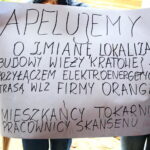 APELUJEMY
O ZMIANĘ LOKALIZA
BUDOWY WIEŻY KRATOWEJ
PRZYŁĄCZEM ELEKTROENERGE
TRASĄ WLZ FIRMY ORANGE
MIESZKAŃCY TOKARNI
PRACOWNICY SKANSENU